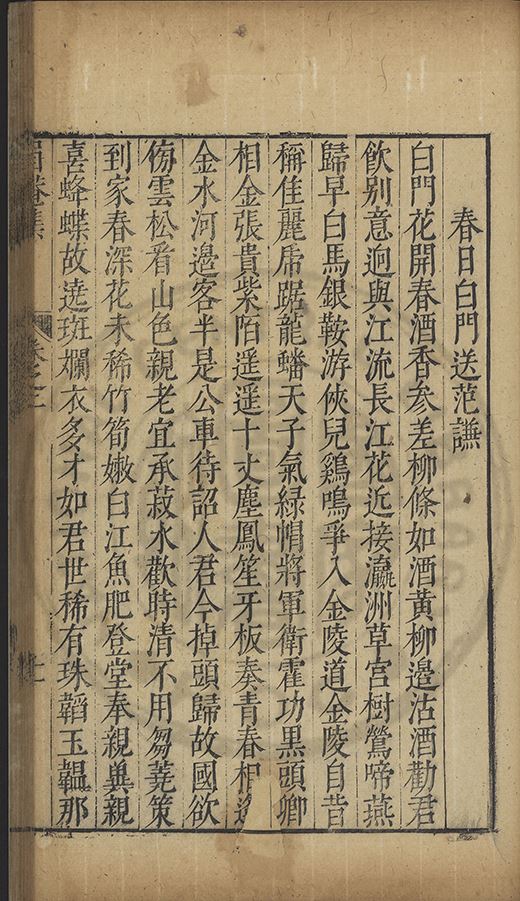 春日白門送范謙
白門花開春酒香參差柳條如酒黃柳邊沽酒勸君
飲別意迥與江流長江花近接瀛洲草宮樹鶯啼燕
歸早白馬銀鞍游俠兒鷄鳴爭入金陵道金陵自昔
稱佳麗虎踞龍蟠天子氣緑帽將軍衛霍功黑頭卿
相金張貴紫陌遥遥十丈塵鳳笙牙板奏青春相逢
金水河邉客半是公車待詔人君今掉頭歸故國欲
傍雲松看山色親老宜承菽水歡時清不用芻蕘策
到家春深花未稀竹筍嫩白江魚肥登堂奉親巽親
喜蜂蝶故遶斑斕衣多才如君世稀有珠韜玉韞那
卷之二
十